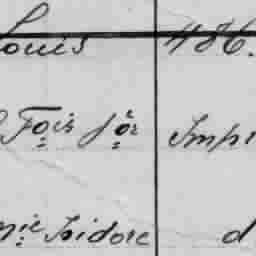 Louis 486.
Fois Jor Impr
nie Isidore d